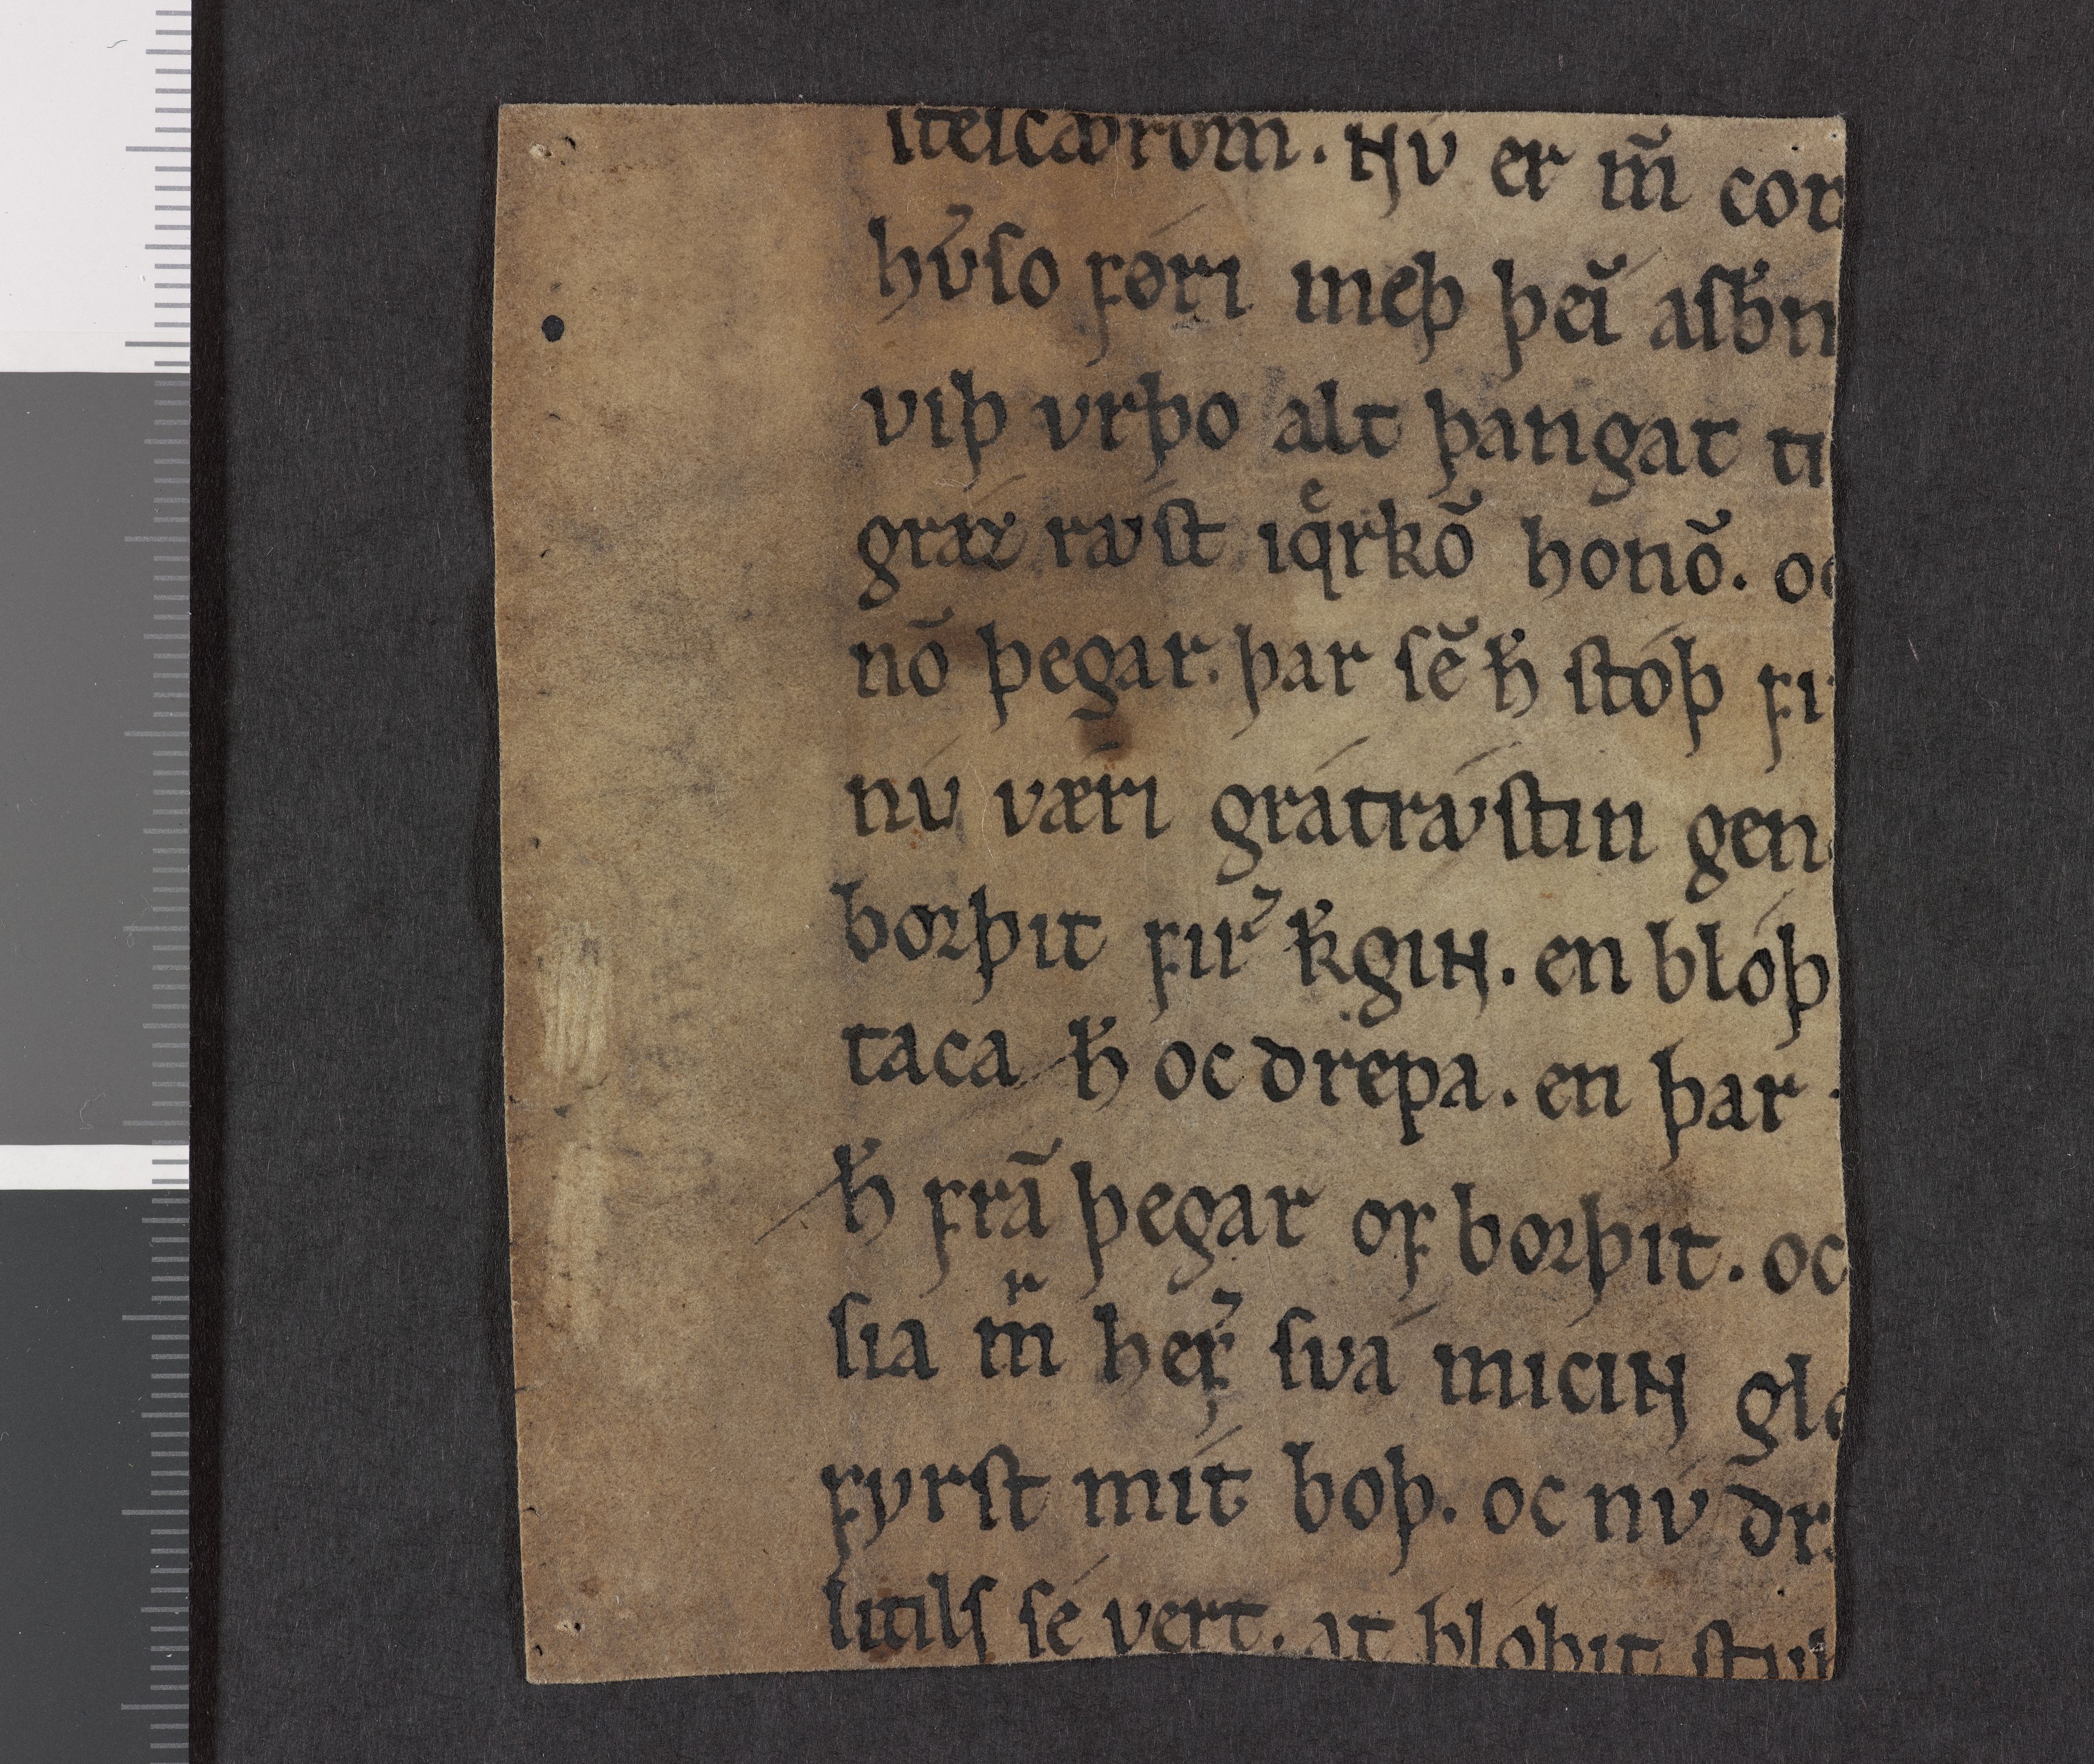 ſteicaꝺrom. ɴv́ er m̄ cor
hv̄ſo fóri meþ þeī aſƀn
viþ vrþo alt þangat ti
gráꝛ raꝩſt iqͤrkō honō. oc
nō þegar. þar ſē ħ ſtóþ fi
nv́ væ̋ri grátraꝩ́ſtin gen
borþit fir᷎ k̄giɴ. en blóþ
taca ħ oc drepa. en þar
ħ frā þegar of borþit. oc
ſia m̄ her᷎ ſvá miciɴ gla
fyrſt mít boþ. oc nv́ dr
lítilſ ſé vert. at bloþit ſtꝩk